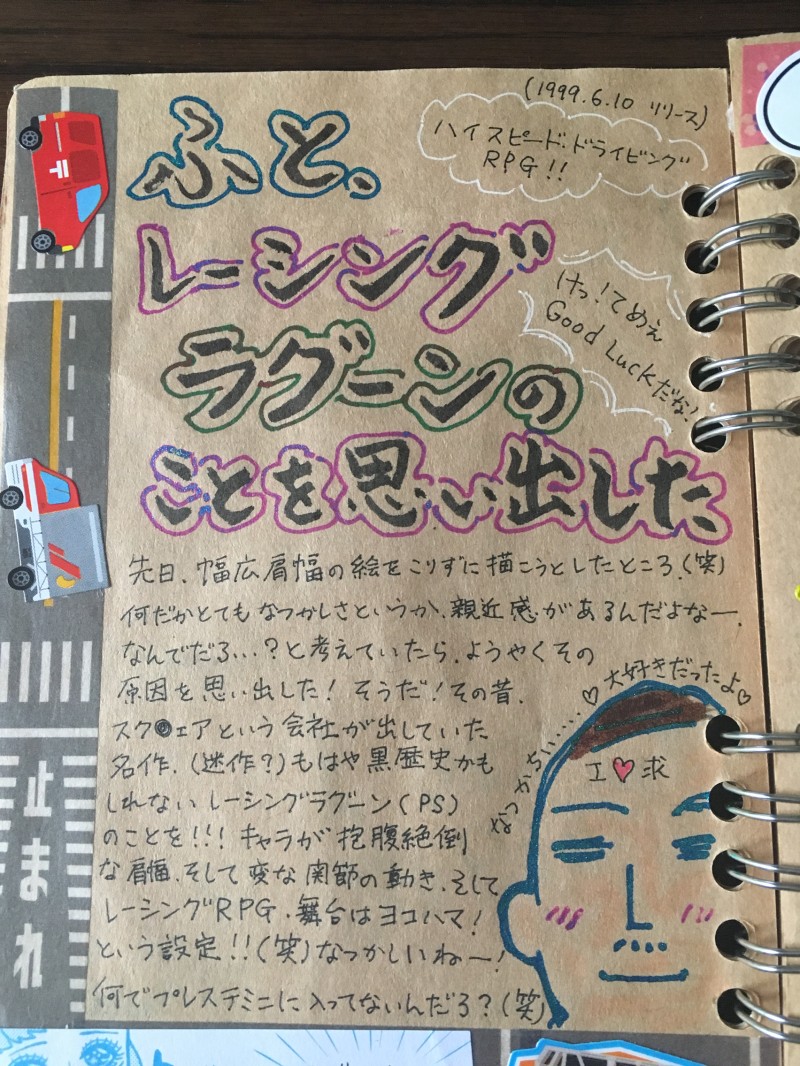 (1999.6.10 リリース)
ハイスピード・ドライビング
RPG!!
ふと、
レーシング
けっ!てめぇ
Good Luckだな!
ラグーンの
ことを思い出した
先日、幅広肩幅の絵をこりずに描こうとしたところ、(笑)
何だかとてもなつかしさというか、親近感があるんだよなー、
なんでだろ…?と考えていたら、ようやくその
原因を思い出した!そうだ!その昔、
スク●ェアという会社が出していた
名作、(迷作?)もはや黒歴史かも
しれないレーシングラグーン(PS)
のことを!!!キャラが抱腹絶倒
な肩幅、そして変な関節の動き、そして
レーシングRPG・舞台はヨコハマ!
という設定!!(笑)なつかしいねー!
何でプレステミニに入ってないんだろ?(笑)
♡大好きだったよ♡
なつかちい……
エ♥求
止まれ
〒